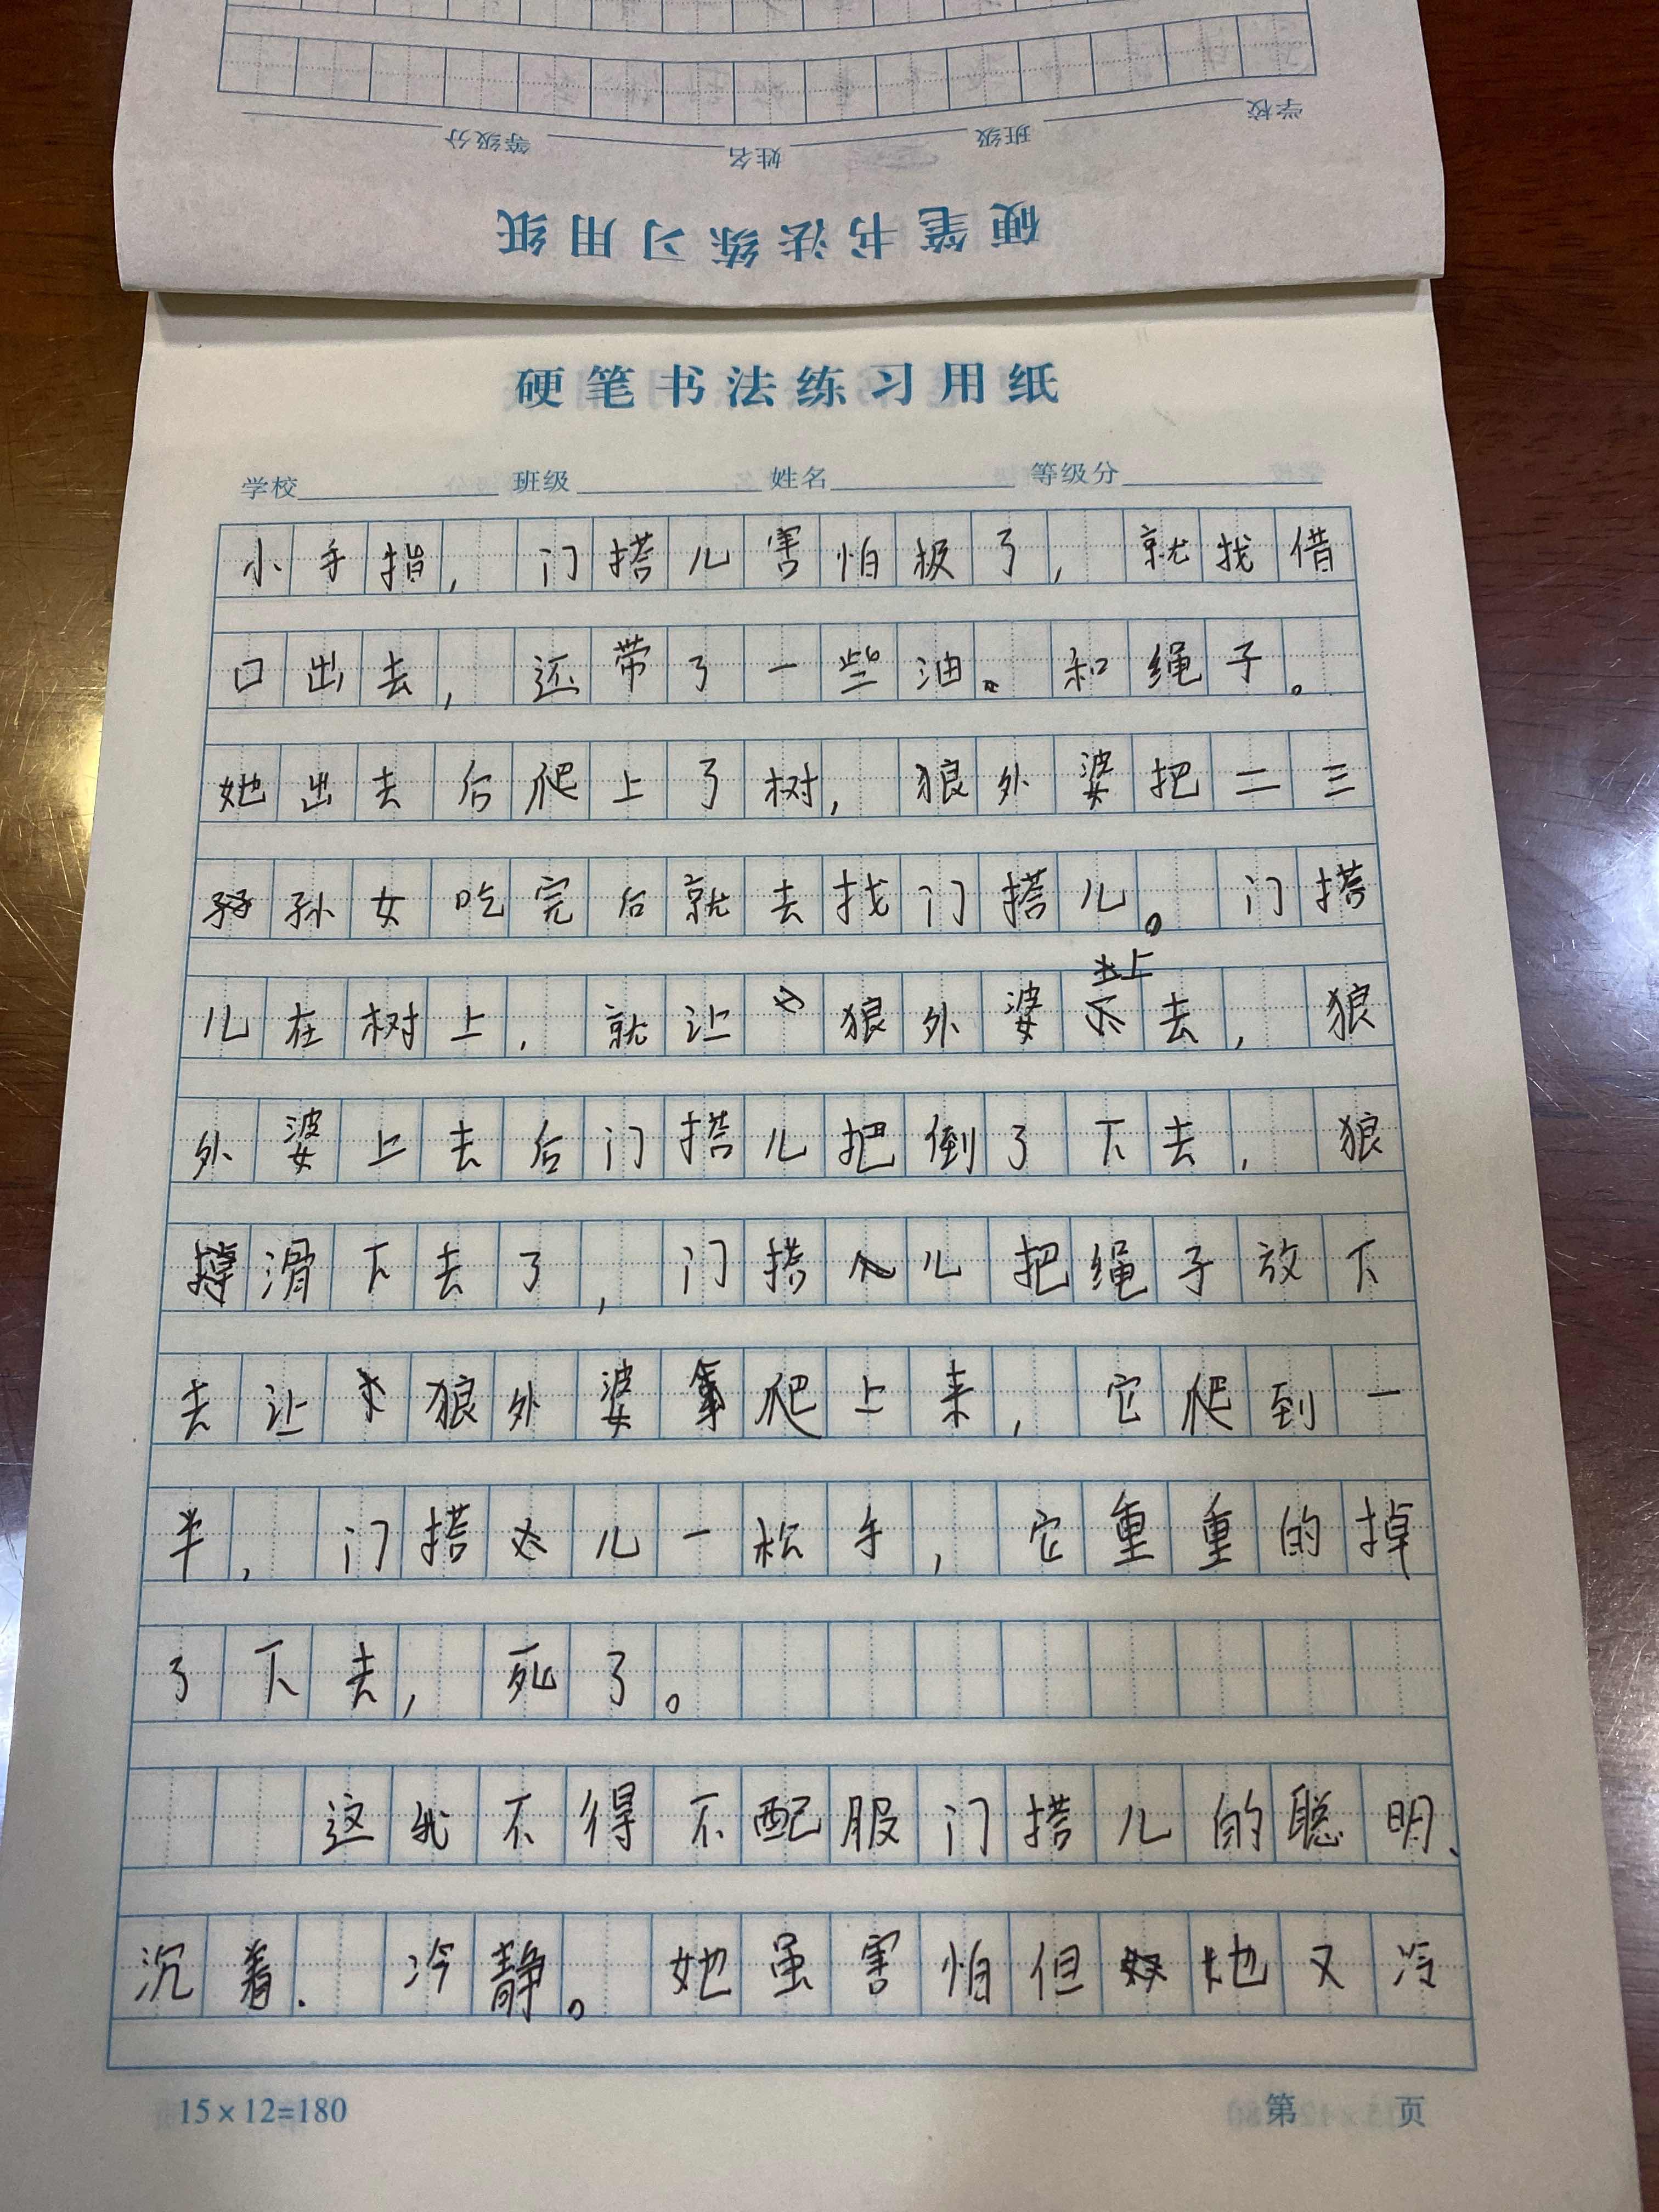 学校 班级 姓名 等级分
硬笔书法练习用纸
硬笔书法练习用纸
学校 班级 姓名 等级分
小手指，门搭儿害怕极了，就找借
口出去，还带了一些油。和绳子。
她出去后爬上了树，狼外婆把二三
孙女吃完后就去找门搭儿。门搭
儿在树上，就让狼外婆上去，狼
外婆上去后门搭儿把倒了下去，狼
滑下去了，门搭儿把绳子放下
去让狼外婆爬上来，它爬到一
半，门搭儿一松手，它重重的掉
了下去，死了。
这我不得不配服门搭儿的聪明、
沉着、冷静。她虽害怕但她又冷
15×12=180 第 页